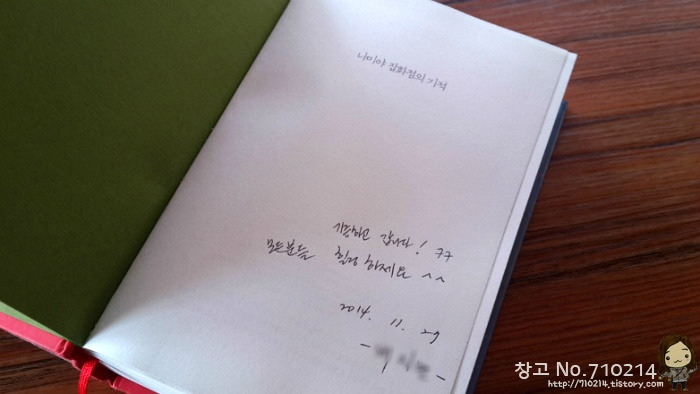 나미야 잡화점의 기적
기증하고 갑니다! ㅋㅋ
모든분들 힐링 하세요 ^^
2014. 11. 29
창고 No.710214
http://710214.tistory.com/